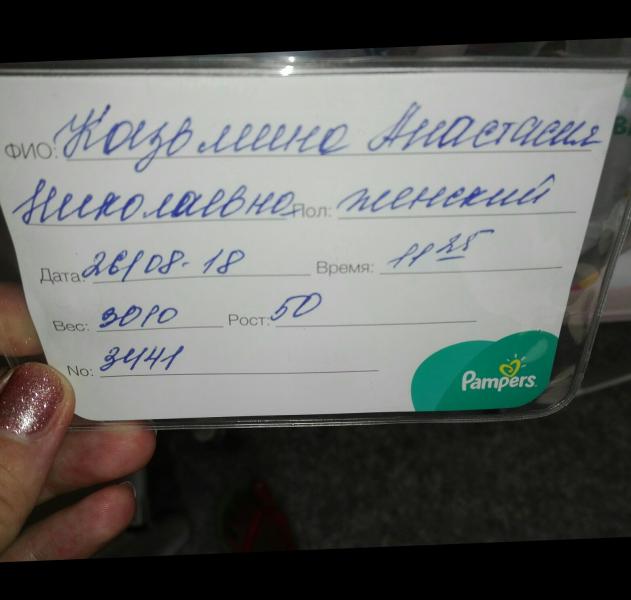 ФИО: Казьмина Анастасия
Николаевна Пол: женский
Дата: 26/08-18 Время: 11 25
Вес: 3010 Рост: 50
No: 3441
Pampers